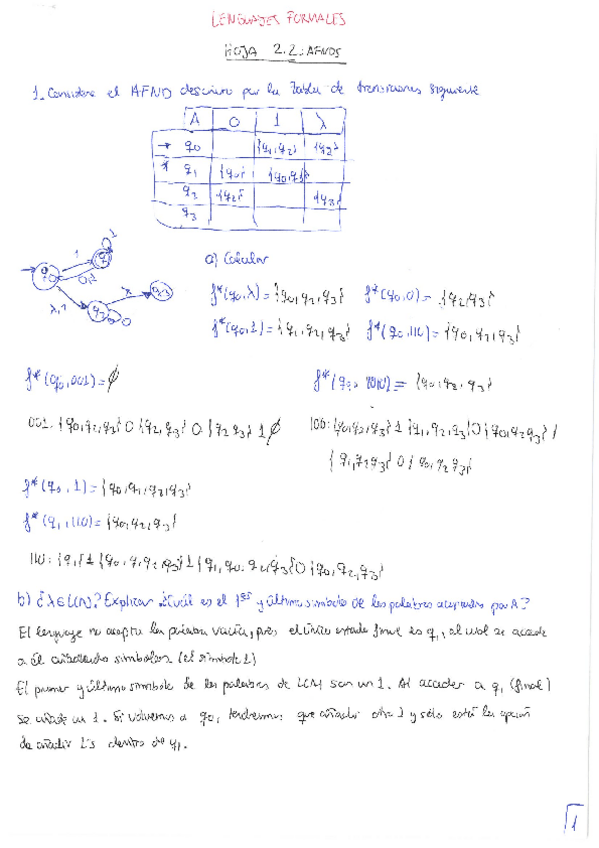 LENGUAJES FORMALES
HOJA 2.2: AFNDS
1. Considere el AFND descrito por la tabla de transiciones siguiente
A 0 1 λ
→ q0 {q1,q2} {q2}
* q1 {q0} {q0,q1}
q2 {q2} {q3}
q3
a) Calcular
f*(q0,λ) = {q0,q2,q3} f*(q0,0) = {q2,q3}
f*(q0,1) = {q1,q2,q3} f*(q0,110) = {q0,q2,q3}
f*(q0,001) = ∅
f*(q0, 1010) = {q0,q2,q3}
001: {q0,q2,q3} 0 {q2,q3} 0 {q2 q3} 1 ∅
{q1 q2 q3} 0 {q0 q2 q3}
f*(q0, 1) = {q0,q1,q2,q3}
f*(q1,110) = {q0,q2,q3}
110: {q1} 1 {q0,q1,q2,q3} 1 {q1,q0,q2,q3} 0 {q0,q2,q3}
b) ¿λ∈L(A)? Explicar ¿Cuál es el 1er y último símbolo de las palabras aceptadas por A?
El lenguaje no acepta la palabra vacía, pues el único estado final es q1, al cual se accede
a él añadiendo símbolos (el símbolo 1)
El primer y último símbolo de las palabras de L(A) son un 1. Al acceder a q1 (final)
se añade un 1. Si volvemos a q0, tendremos que añadir otro 1 y sólo está la opción
de añadir 1's dentro de q1.
1